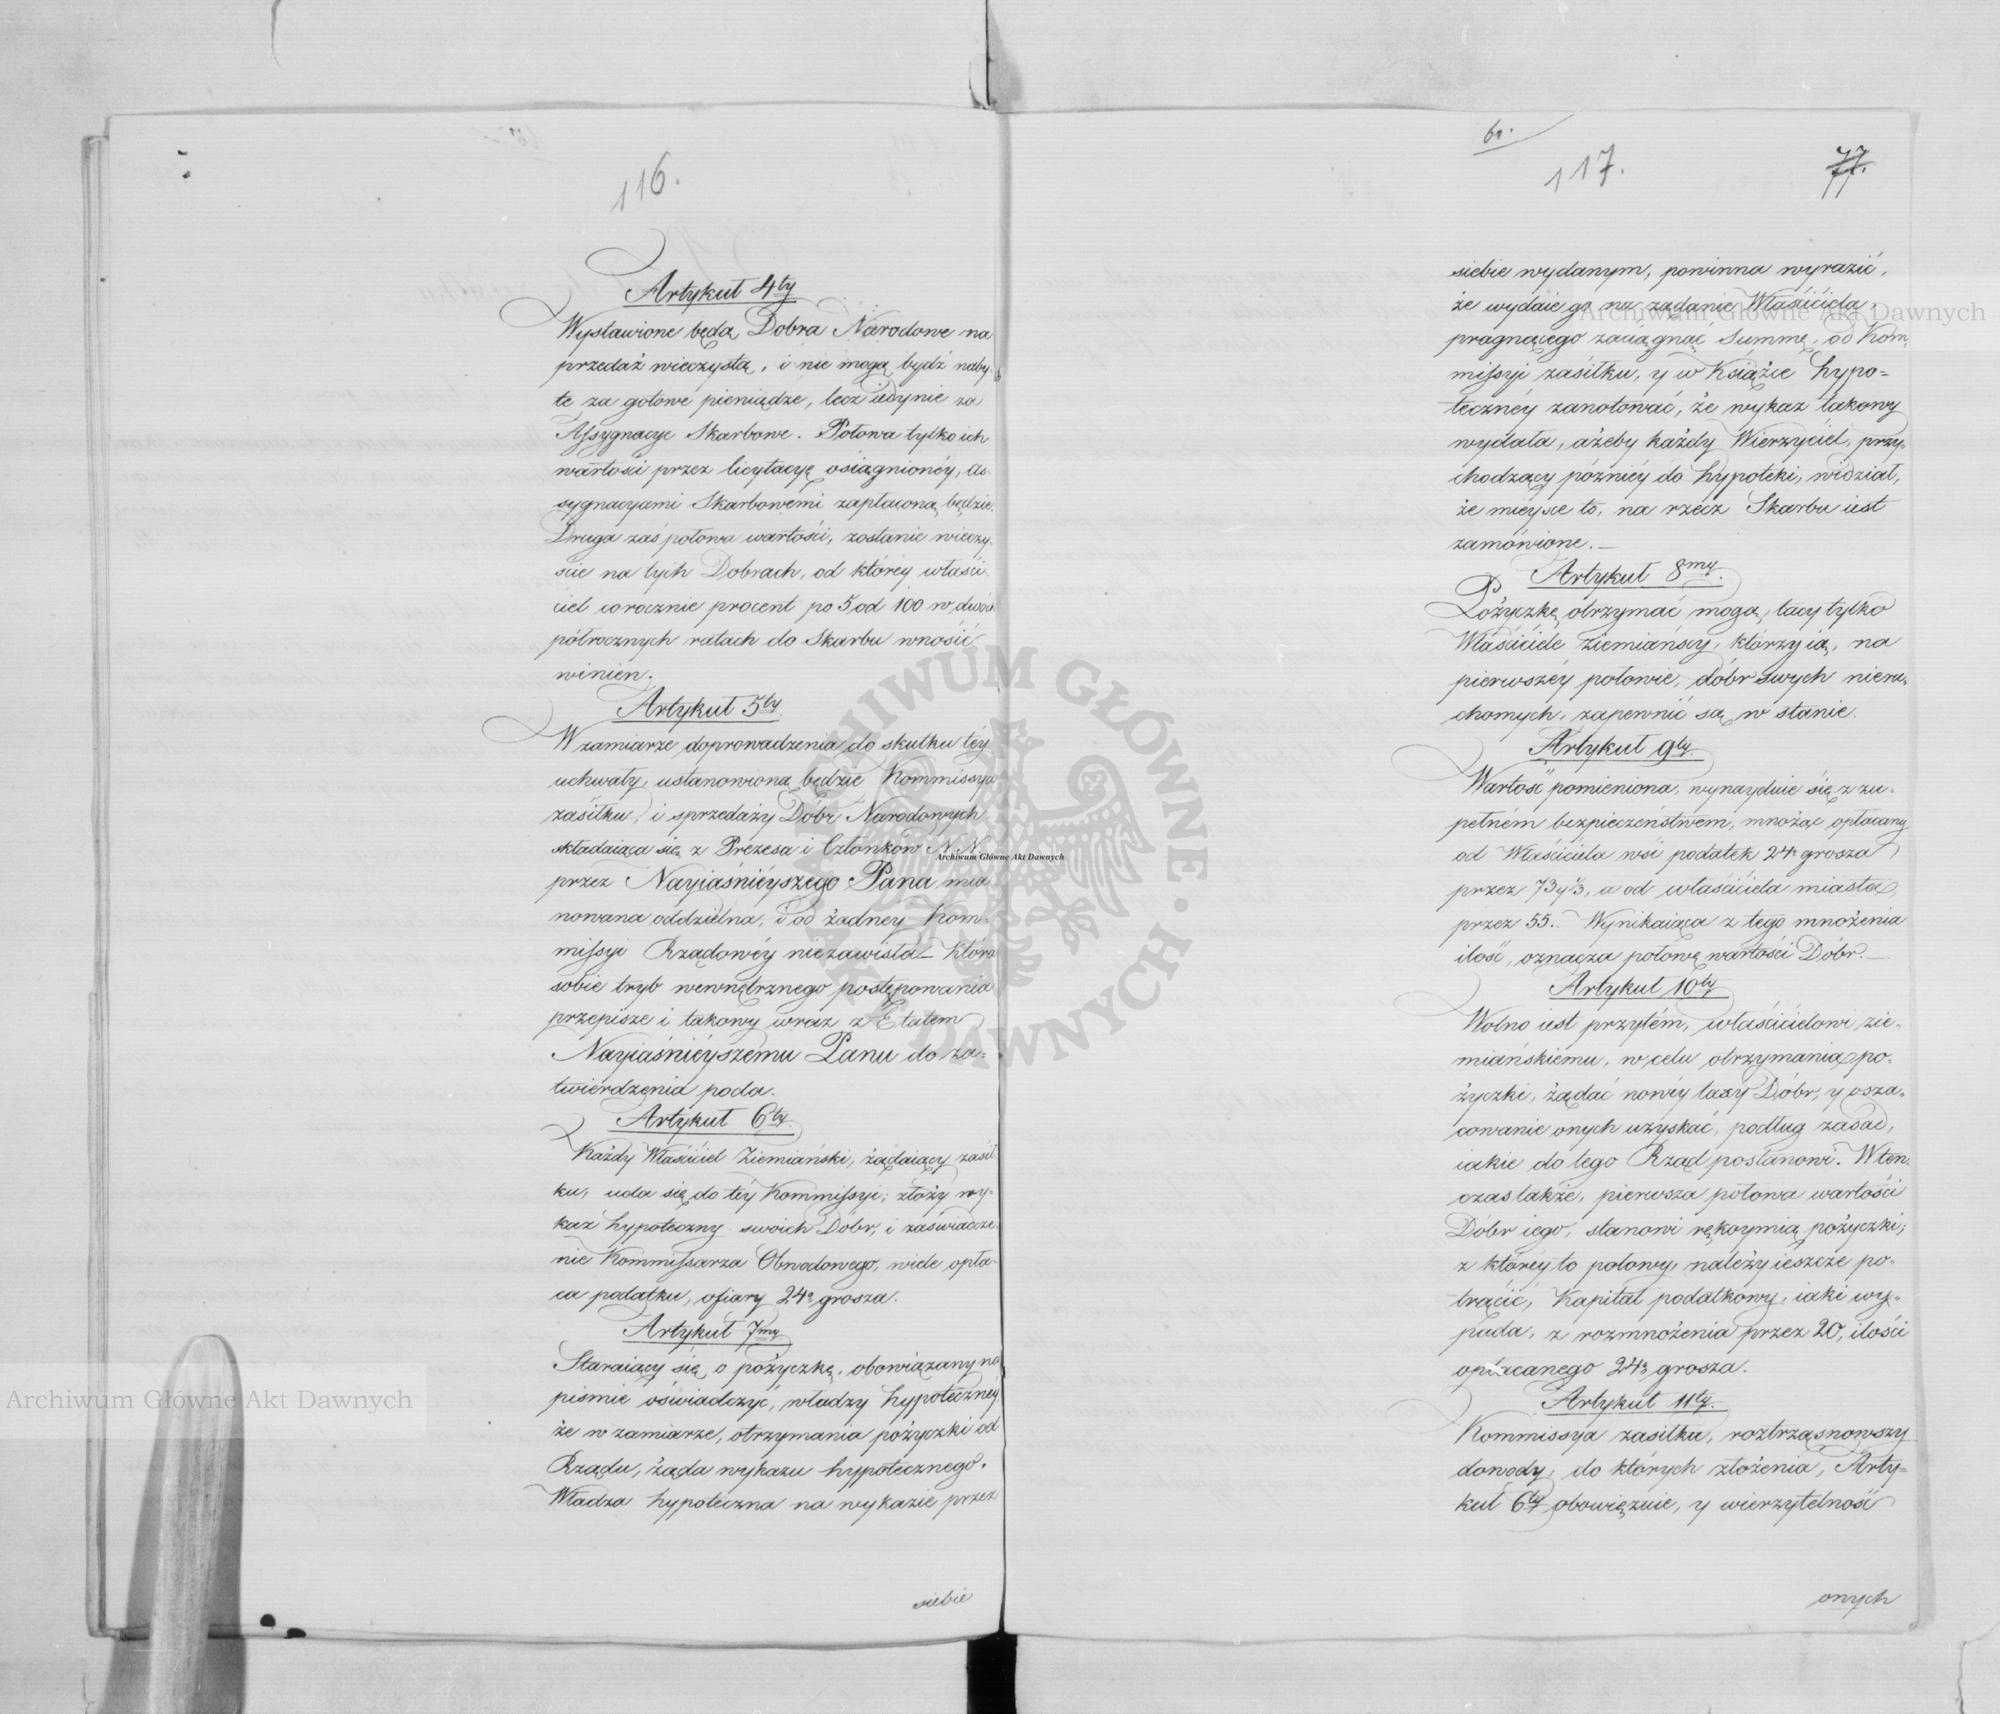 116.
Artykuł 4ty
Wystawione będą Dobra Narodowe na
przedaż wieczystą, i nie mogą bydź naby-
te za gotowe pieniądze, lecz iedynie za
Assygnacye Skarbowe. Połowa tylko ich
wartości przez licytacyę osiągnionéy, As-
sygnacyami Skarbowemi zapłaconą będzie.
Druga zaś połowa wartości, zostanie wieczy-
ście na tych Dobrach, od któréy właści-
ciel corocznie procent po 5 od 100 w dwóch
półrocznych ratach do Skarbu wnosić
winien.
Artykuł 5ty
W zamiarze doprowadzenia do skutku téy
uchwały, ustanowioną będzie Kommissya
zasiłku, i sprzedaży Dóbr Narodowych
składaiąca się z Prezesa i Członków N.N.
przez Nayiaśnieyszego Pana mia-
nowana oddzielna, i od żadnéy Kom-
missyi Rządowéy niezawisła – Która
sobie tryb wewnętrznego postępowania
przepisze i takowy wraz z Etatem
Nayiaśniéyszemu Panu do za-
twierdzenia poda.
Artykuł 6ty
Każdy Właściciel Ziemiański, żądaiący zasił-
ku, uda się do téy Kommissyi; złoży wy-
kaz hypoteczny swoich Dóbr, i zaświadcze-
nie Kommissarza Obwodowego, wiele opła-
ca podatku, ofiary 24o grosza.
Artykuł 7my
Staraiący się o pożyczkę, obowiązany na
piśmie oświadczyć, władzy hypotecznéy
że w zamiarze, otrzymania pożyczki od
Rządu, żąda wykazu hypotecznego.
Władza hypoteczna na wykazie przez
siebie
117.
77.
siebie wydanym, powinna wyrazić,
że wydaie go na żądanie Właściciela,
pragnącego zaciągnąć Summę, od Kom-
missyi zasiłku, y w Książce hypo-
tecznéy zanotować, że wykaz takowy
wydała, ażeby każdy Wierzyciel, przy-
chodzący późniéy do hypoteki, widział,
że mieysce to, na rzecz Skarbu iest
zamówione. –
Artykuł 8my.
Pożyczkę, otrzymać mogą, tacy tylko
Właściciele ziemiańscy, którzy ią, na
pierwszéy połowie, dóbr swych nieru-
chomych, zapewnić są w stanie.
Artykuł 9ty.
Wartość pomieniona, wynayduie się z zu-
pełném bezpieczeństwem, mnożąc opłacany
od Właściciela wsi podatek 24o grosza
przez 73 y 1/3, a od właściciela miasta
przez 55. Wynikaiąca z tego mnożenia
ilość, oznacza połowę wartości Dóbr. –
Artykuł 10ty
Wolno iest przytém, właścicielowi zie-
miańskiemu, w celu otrzymania po-
życzki, żądać nowéy taxy Dóbr, y osza-
cowanie onych uzyskać, podług zasad,
iakie do tego Rząd postanowi. W ten-
czas także, pierwsza połowa wartości
Dóbr iego, stanowi rękoymią pożyczki;
z któréy to połowy, należy ieszcze po-
trącić, Kapitał podatkowy, iaki wy-
pada, z rozmnożenia przez 20, ilości
opłacanego 24o grosza.
Artykuł 11ty.
Kommissya zasiłku, roztrząsnowszy
dowody, do których złożenia, Arty-
kuł 6ty obowiązuie, y wierzytelność
onych
Archiwum Główne Akt Dawnych
Archiwum Główne Akt Dawnych
Archiwum Główne Akt Dawnych
ARCHIWUM GŁÓWNE • AKT DAWNYCH •